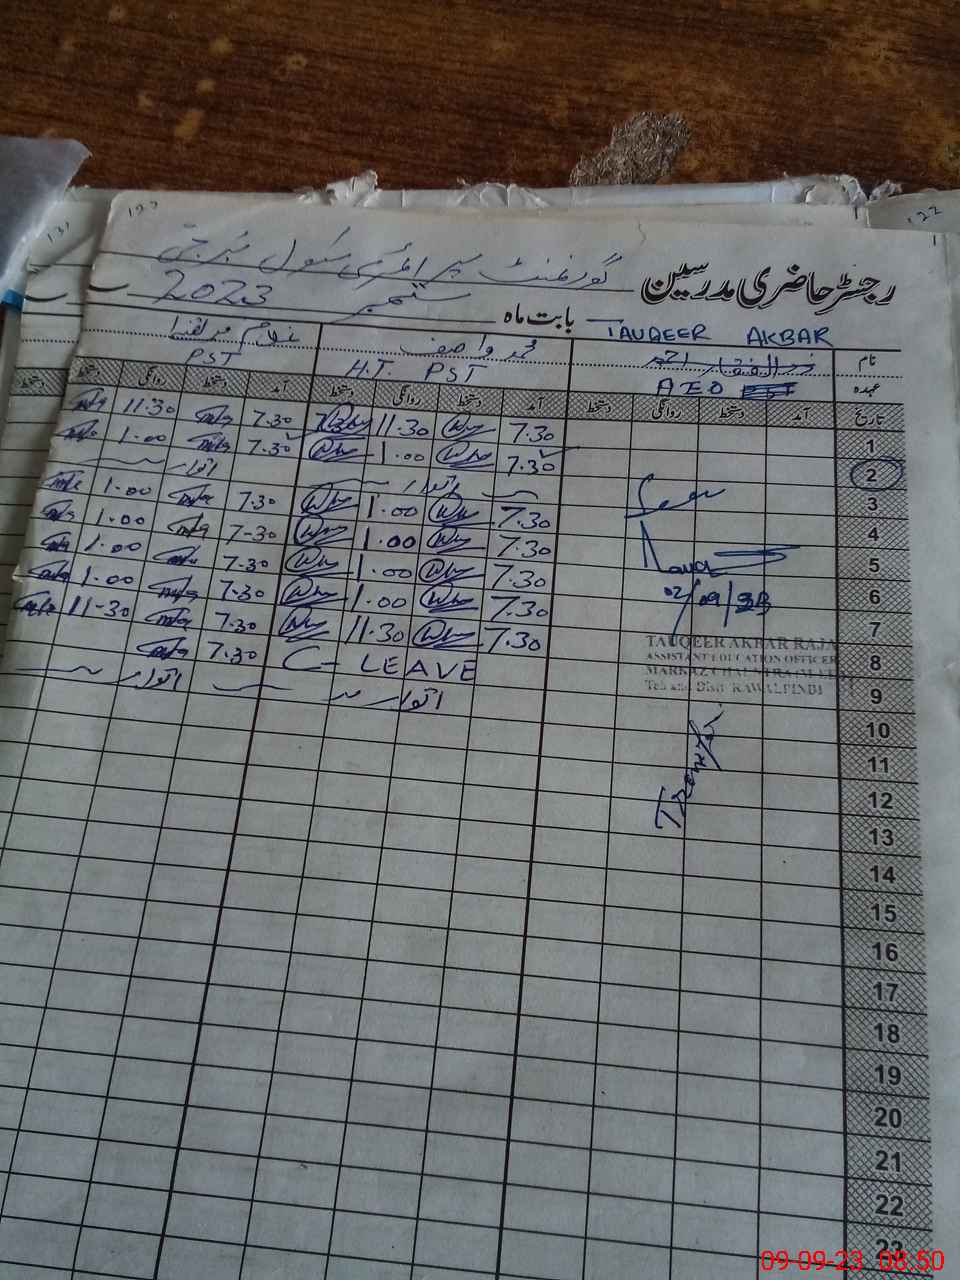 122
122
گورنمنٹ پرائمری سکول
رجسٹر حاضری مدرسین
بابت ماہ ستمبر 2023
نام TAUQEER AKBAR محمد واصف غلام مرتضیٰ
ذوالفقار احمد
عہدہ AEO H.T. PST PST
تاریخ آمد دستخط روانگی دستخط آمد دستخط روانگی دستخط آمد دستخط روانگی دستخط
1 7.30 11.30 7.30 11.30
2 7.30 1.00 7.30 1.00
3 اتوار اتوار
4 7.30 1.00 7.30 1.00
5 7.30 1.00 7-30 1.00
6 7.30 1.00 7.30 1.00
7 7.30 1.00 7.30 1.00
8 7.30 11.30 7.30 11-30
9 C- LEAVE 7.30
10 اتوار اتوار
02/09/23
TAUQEER AKBAR RAJA
ASSISTANT EDUCATION OFFICER
MARKAZ
Teh and Distt RAWALPINDI
11
12
13
14
15
16
17
18
19
20
21
22
23
09-09-23 08:50